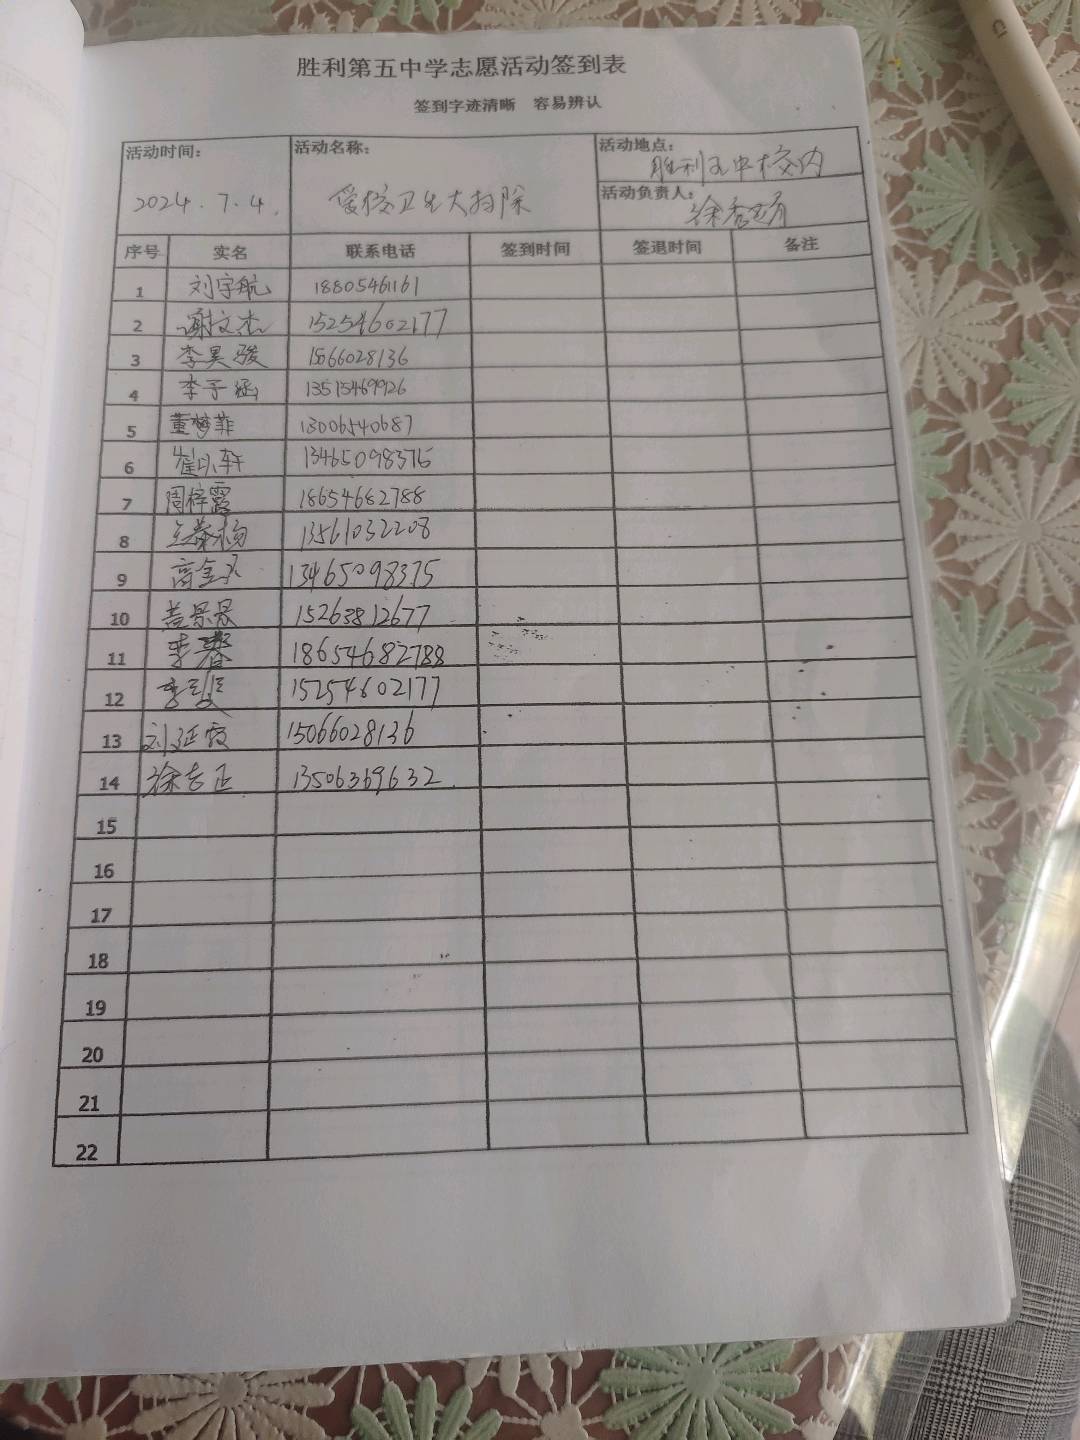 胜利第五中学志愿活动签到表
签到字迹清晰 容易辨认
活动时间： 活动名称： 活动地点：胜利五中校内
2024.7.4. 爱校卫生大扫除 活动负责人：徐
序号 实名 联系电话 签到时间 签退时间 备注
1 刘宇航 18805461161
2 谢文杰 15254602177
3 李昊骏 1566028136
4 李子涵 13515469926
5 董梦菲 13006540687
6 崔以轩 13465098375
7 周梓露 18654682788
8 13561032208
9 高金 13465098375
10 15263812677
11 李馨 18654682788
12 李 15254602177
13 刘延霞 15066028136
14 徐志正 13506369632
15
16
17
18
19
20
21
22